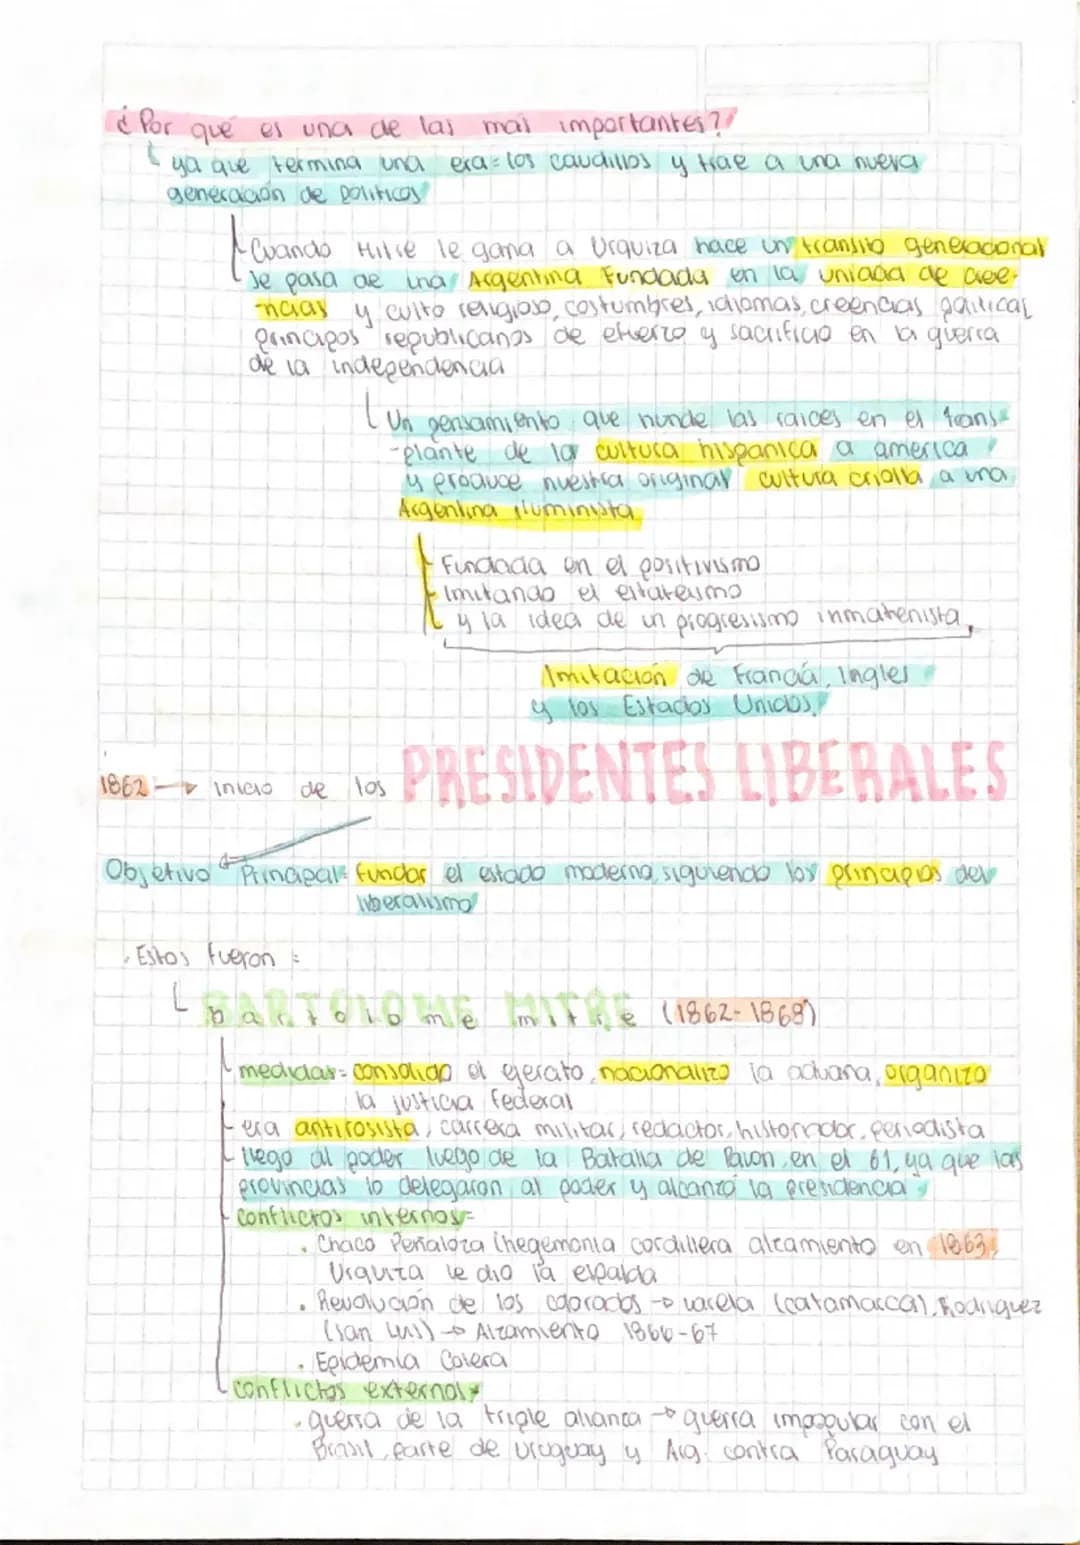 ¿Por qué es una de las mas importantes?
ya que termina una era= los caudillos y trae a una nueva
generación de politicos
Cuando Mitre le gana a Urquiza hace un transito generacional
se pasa de una Argentina Fundada en la unidad de cree-
-ncias y culto religioso, costumbres, idiomas, creencias politicas,
principos republicanos de efuerzo y sacrificio en la guerra
de la independencia
Un pensamiento que hunde las raices en el trans-
-plante de la cultura hispanica a america
y produce nuestra original cultura criolla a una
Argentina iluminista
Fundada en el positivismo
Imitando el
y la idea de un progresismo inmatenista,
Imitación de Francia, Ingles
y los Estados Unidos.
1862 → inicio de los PRESIDENTES LIBERALES
Objetivo Principal= fundar el estado moderno, siguiendo los principios del
liberalismo
Estos fueron =
BARTOLOME MITRE bartolome mitre (1862-1868)
medidas= consolido el ejercito, nacionalizo la aduana, organizo
la justicia federal
era antirosista, carrera militar, redactor, historiador, periodista
llego al poder luego de la Batalla de Pavon, en el 61, ya que las
provincias lo delegaron al poder y alcanzó la presidencia
conflictos internos=
• Chaco Peñaloza (hegemonia cordillera alzamiento en 1863,
Urquiza le dio la espalda
• Revolución de los colorados → varela (catamarca), Rodriguez
(san Luis) → Alzamiento 1866-67
• Epidemia Colera
conflictos externos=
• guerra de la triple alianza → guerra impopular con el
Brasil, parte de uruguay y Arg. contra Paraguay